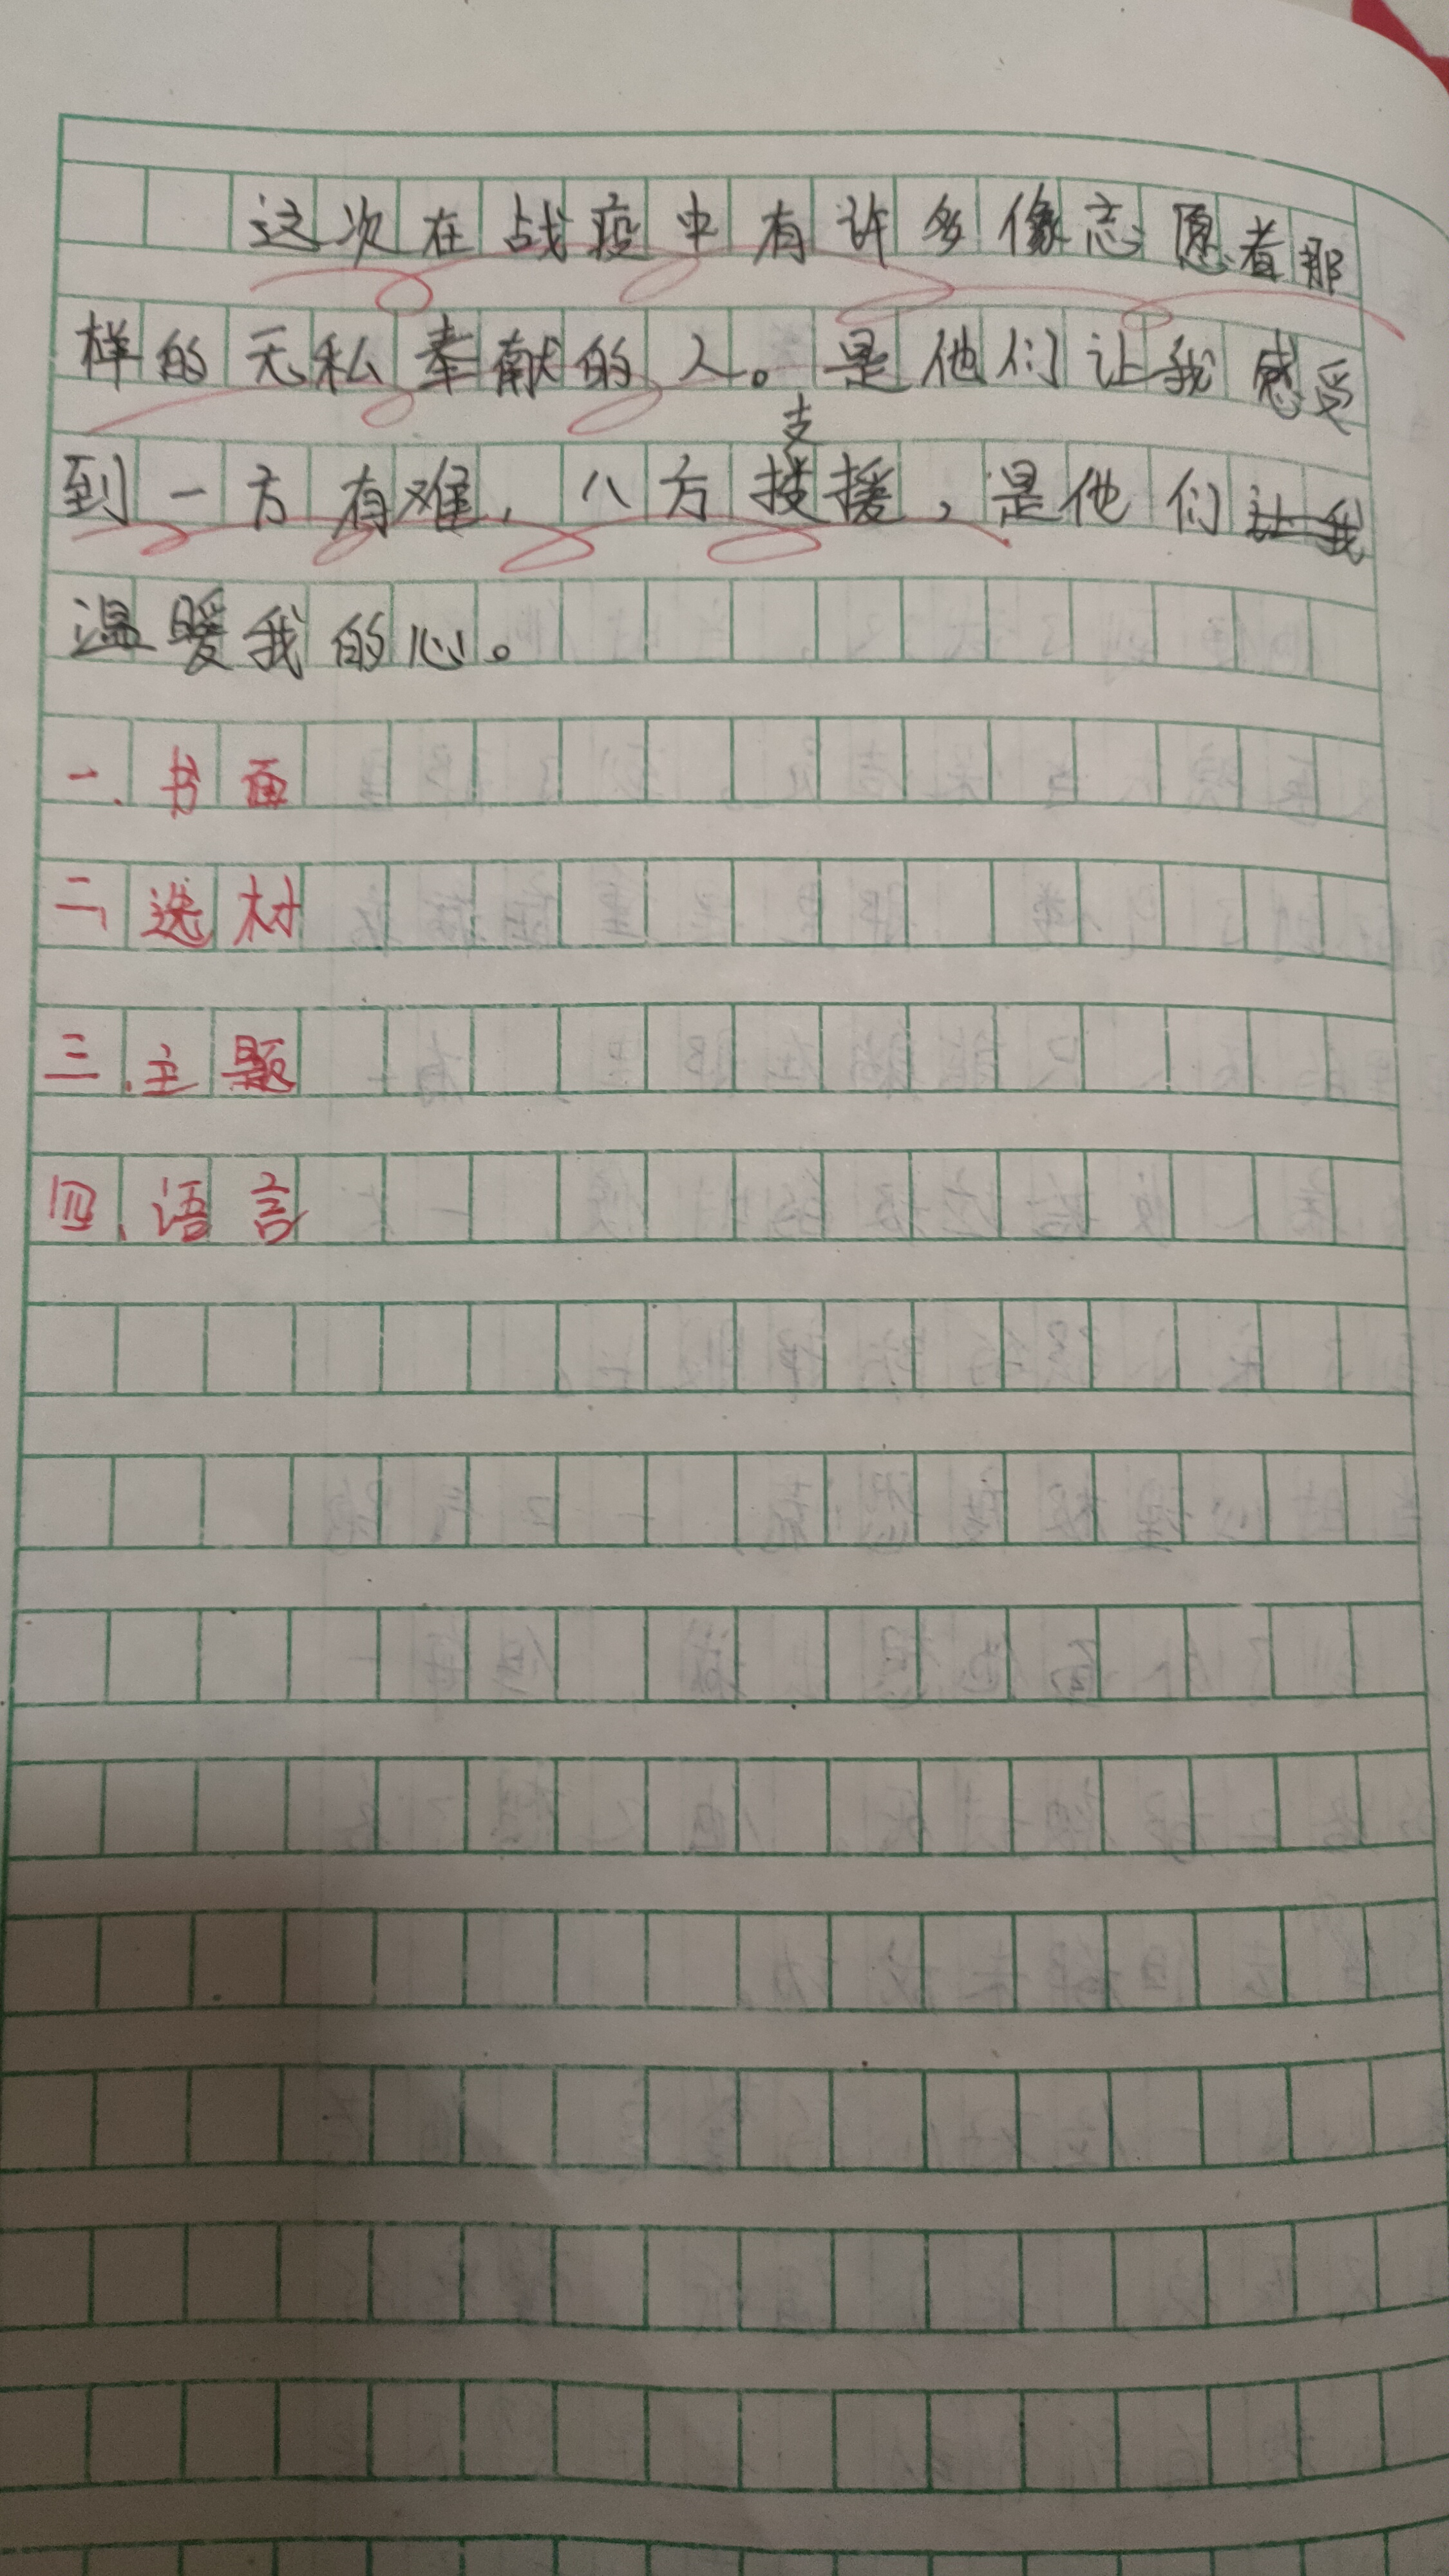 这次在战疫中有许多像志愿者那
样的无私奉献的人。是他们让我感受
支
到一方有难，八方援，是他们让我
温暖我的心。
一、书面
二、选材
三、主题
四、语言